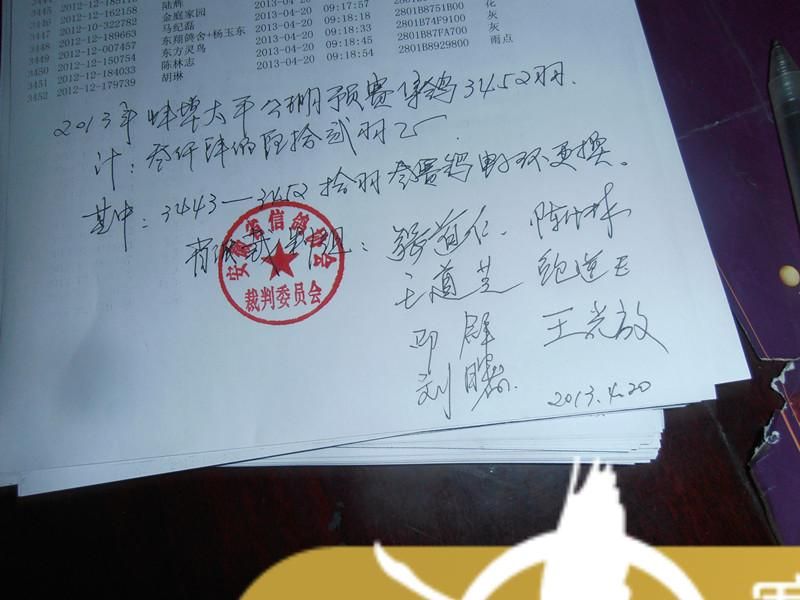 3446 2012-12-162158 金庭家园 2013-04-20 09:17:57 2801B8751B00 花
3447 2012-10-322782 马纪磊 2013-04-20 09:18:18 2801B74F9100 灰
3448 2012-12-189663 东翔鸽舍+杨玉东 2013-04-20 09:18:33 2801B87FA700 灰
3449 2012-12-007457 东方灵鸟 2013-04-20 09:18:45 2801B8929800 雨点
3450 2012-12-150754 陈林志 2013-04-20 09:18:54
3451 2012-12-184033 胡琳
3452 2012-12-179739
2013年蚌埠太平公棚预赛集鸽3452羽.
计:叁仟肆佰伍拾贰羽
其中:3443—3452拾羽参赛鸽电子环更换。
裁判组:
王道芝 鲍运玉
邓辉 王光敏
刘曙
2013.4.20
安徽省信鸽协会
裁判委员会